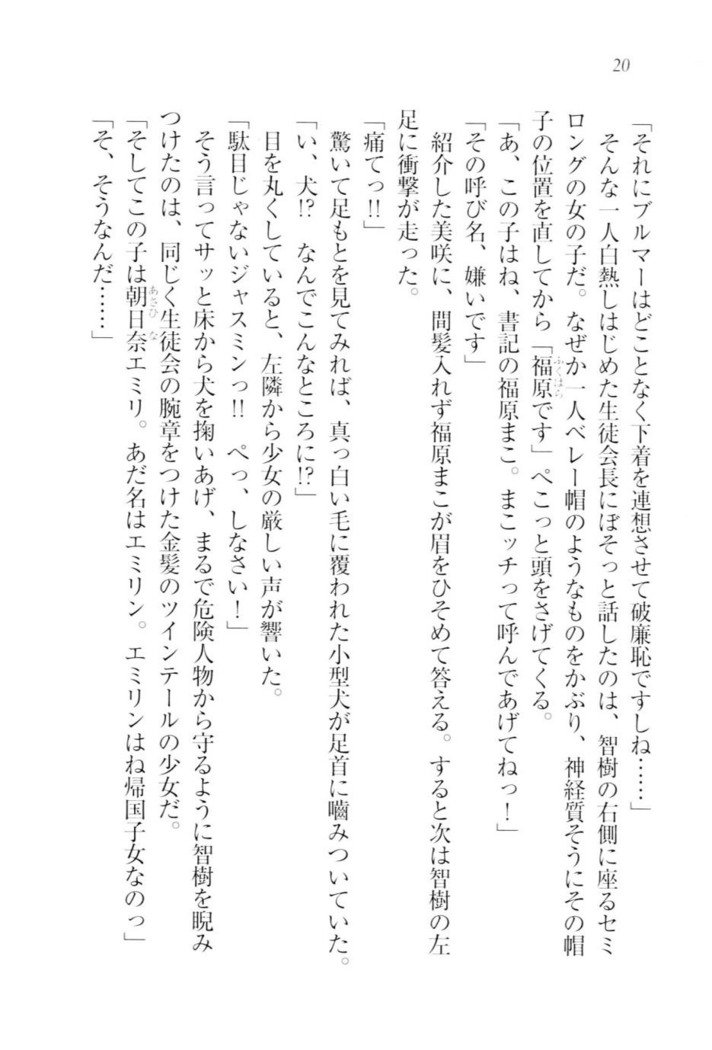 20
「それにブルマーはどことなく下着を連想させて破廉恥ですしね……」
そんな一人白熱しはじめた生徒会長にぼそっと話したのは、智樹の右側に座るセミ
ロングの女の子だ。なぜか一人ベレー帽のようなものをかぶり、神経質そうにその帽
子の位置を直してから「福原です」ぺこっと頭をさげてくる。
「あ、この子はね、書記の福原まこ。まこッチって呼んであげてねっ！」
「その呼び名、嫌いです」
紹介した美咲に、間髪入れず福原まこが眉をひそめて答える。すると次は智樹の左
足に衝撃が走った。
「痛てっ!!」
驚いて足もとを見てみれば、真っ白い毛に覆われた小型犬が足首に嚙みついていた。
「い、犬!?　なんでこんなところに!?」
目を丸くしていると、左隣から少女の厳しい声が響いた。
「駄目じゃないジャスミンっ!!　ぺっ、しなさい！」
そう言ってサッと床から犬を掬いあげ、まるで危険人物から守るように智樹を睨み
つけたのは、同じく生徒会の腕章をつけた金髪のツインテールの少女だ。
「そしてこの子は朝日奈エミリ。あだ名はエミリン。エミリンはね帰国子女なのっ」
「そ、そうなんだ……」